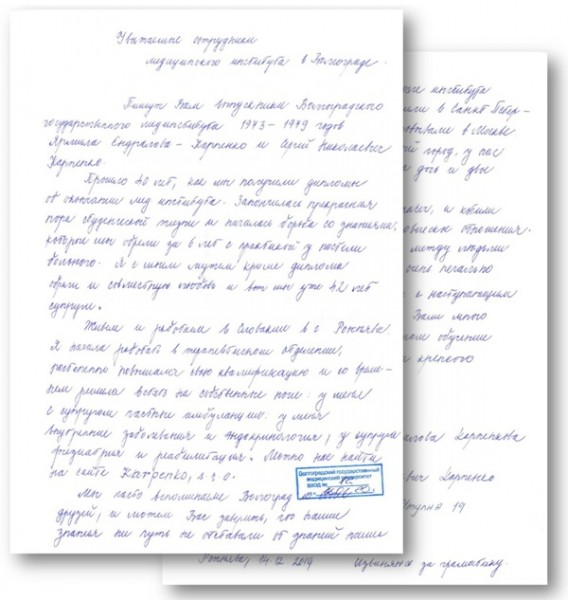 Уважаемые сотрудники
медицинского института в Волгограде.
Пишут Вам выпускники Волгоградского
государственного мединститута 1973-1979 годов
Ярмила Ендралова-Карпенко и Сергей Николаевич
Карпенко.
Прошло 40 лет, как мы получили дипломы
об окончании мед института. Закончилась прекрасная
пора студенческой жизни и началась борьба со знаниями,
которые мы обрели за 6 лет с практикой у постели
больного. Я с моим мужем кроме диплома
обрели и совместную любовь и вот мы уже 42 лет
супруги.
Живем и работаем в Словакии в г. Рожнява
Я начала работать в терапевтическом отделении,
постепенно повышала свою квалификацию и со време-
нем решила встать на собственные ноги: у меня
с супругом частные амбуланции: у меня
внутренние заболевания и эндокринология, у супруга
физиатрия и реабилитация. Можно нас найти
на сайте Karpenko, s.r.o.
Мы часто вспоминаем Волгоград
друзей, и можем Вас заверить, что наши
знания ни чуть не отставали от знаний наших
Волгоградский государственный
медицинский университет
ВХОД №
института
в Санкт Петер-
бывали в Москве
город, у нас
дочь и две
и жили
отношения.
между людьми
очень печально
с наступающим
Вам много
обучении
крепкого
Карпенкова
Карпенко
19
Рожнява, 14.12.2019
Извиняюсь за грамматику.